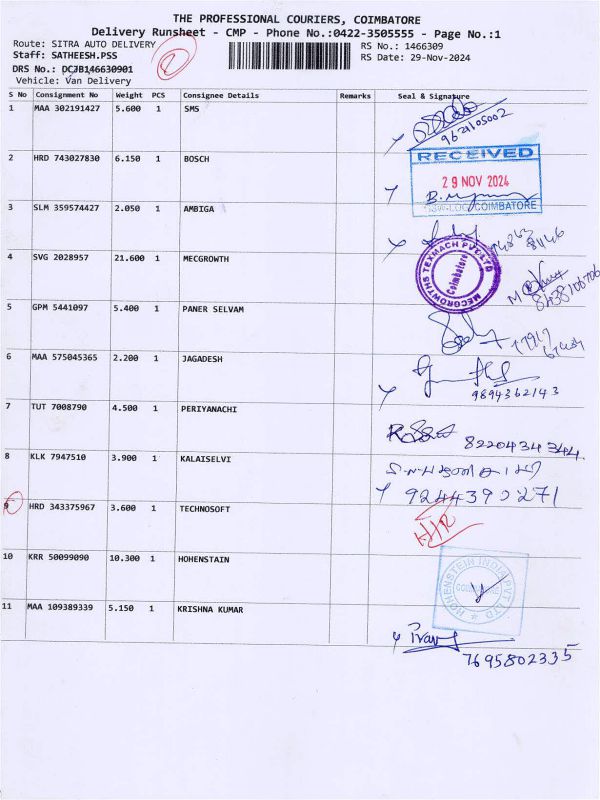 THE PROFESSIONAL COURIERS, COIMBATORE
Delivery Runsheet - CMP - Phone No.:0422-3505555 - Page No.:1
Route: SITRA AUTO DELIVERY
RS No.: 1466309
Staff: SATHEESH.PSS
RS Date: 29-Nov-2024
DRS No.: DCJB146630901
Vehicle: Van Delivery
S No Consignment No Weight PCS Consignee Details Remarks Seal & Signature
1 MAA 302191427 5.600 1 SMS
9621105002
2 HRD 743027830 6.150 1 BOSCH
RECEIVED
29 NOV 2024
COIMBATORE
3 SLM 359574427 2.050 1 AMBIGA
4 SVG 2028957 21.600 1 MECGROWTH
MECGROWTHS TEXMACH PVT LTD
Coimbatore
8438100706
5 GPM 5441097 5.400 1 PANER SELVAM
6 MAA 575045365 2.200 1 JAGADESH
9894362143
7 TUT 7008790 4.500 1 PERIYANACHI
8220434344
8 KLK 7947510 3.900 1 KALAISELVI
9244390271
9 HRD 343375967 3.600 1 TECHNOSOFT
10 KRR 50099090 10.300 1 HOHENSTAIN
HOHENSTEIN INDIA PVT LTD
11 MAA 109389339 5.150 1 KRISHNA KUMAR
7695802335